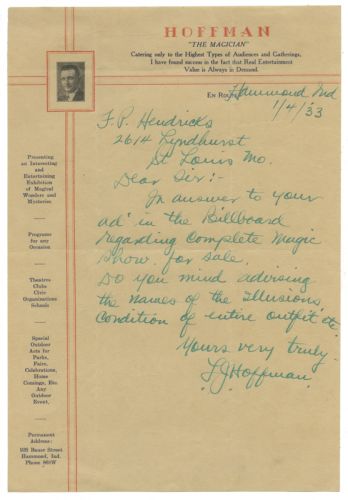 HOFFMAN
"THE MAGICIAN"
Catering only to the Highest Types of Audiences and Gatherings,
I have found success in the fact that Real Entertainment
Value is Always in Demand.
EN ROUTE Hammond Ind
1/4/33
F. P. Hendricks
2614 Lyndhurst
St Louis Mo.
Dear Sir:-
In answer to your
ad' in the Billboard
regarding Complete Magic
Show. for sale.
Do you mind advising
the names of the Illusions
Condition of entire outfit etc.
Yours very truly.
L J Hoffman.
Presenting
an Interesting
and
Entertaining
Exhibition
of Magical
Wonders and
Mysteries
Programs
for any
Occasion
Theatres
Clubs
Civic
Organizations
Schools
Special
Outdoor
Acts for
Parks,
Fairs,
Celebrations,
Home
Comings, Etc.
Any
Outdoor
Event.
Permanent
Address:
Bauer Street
Hammond, Ind.
Phone